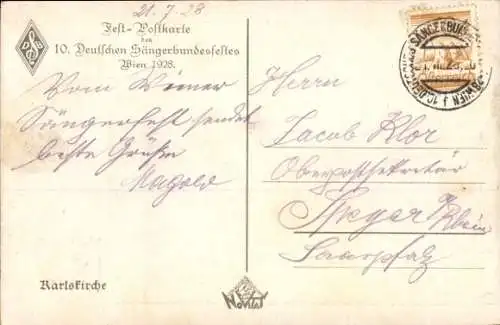 21.7.28
Fest-Postkarte
des
10. Deutschen Sängerbundesfestes
Wien 1928.
DSB
Vom Wiener
Sängerfest sendet
beste Grüße
Magold
Karlskirche
Herrn
Jacob Klor
Oberpostsekretär
Speyer a/Rhein
Saarpfalz